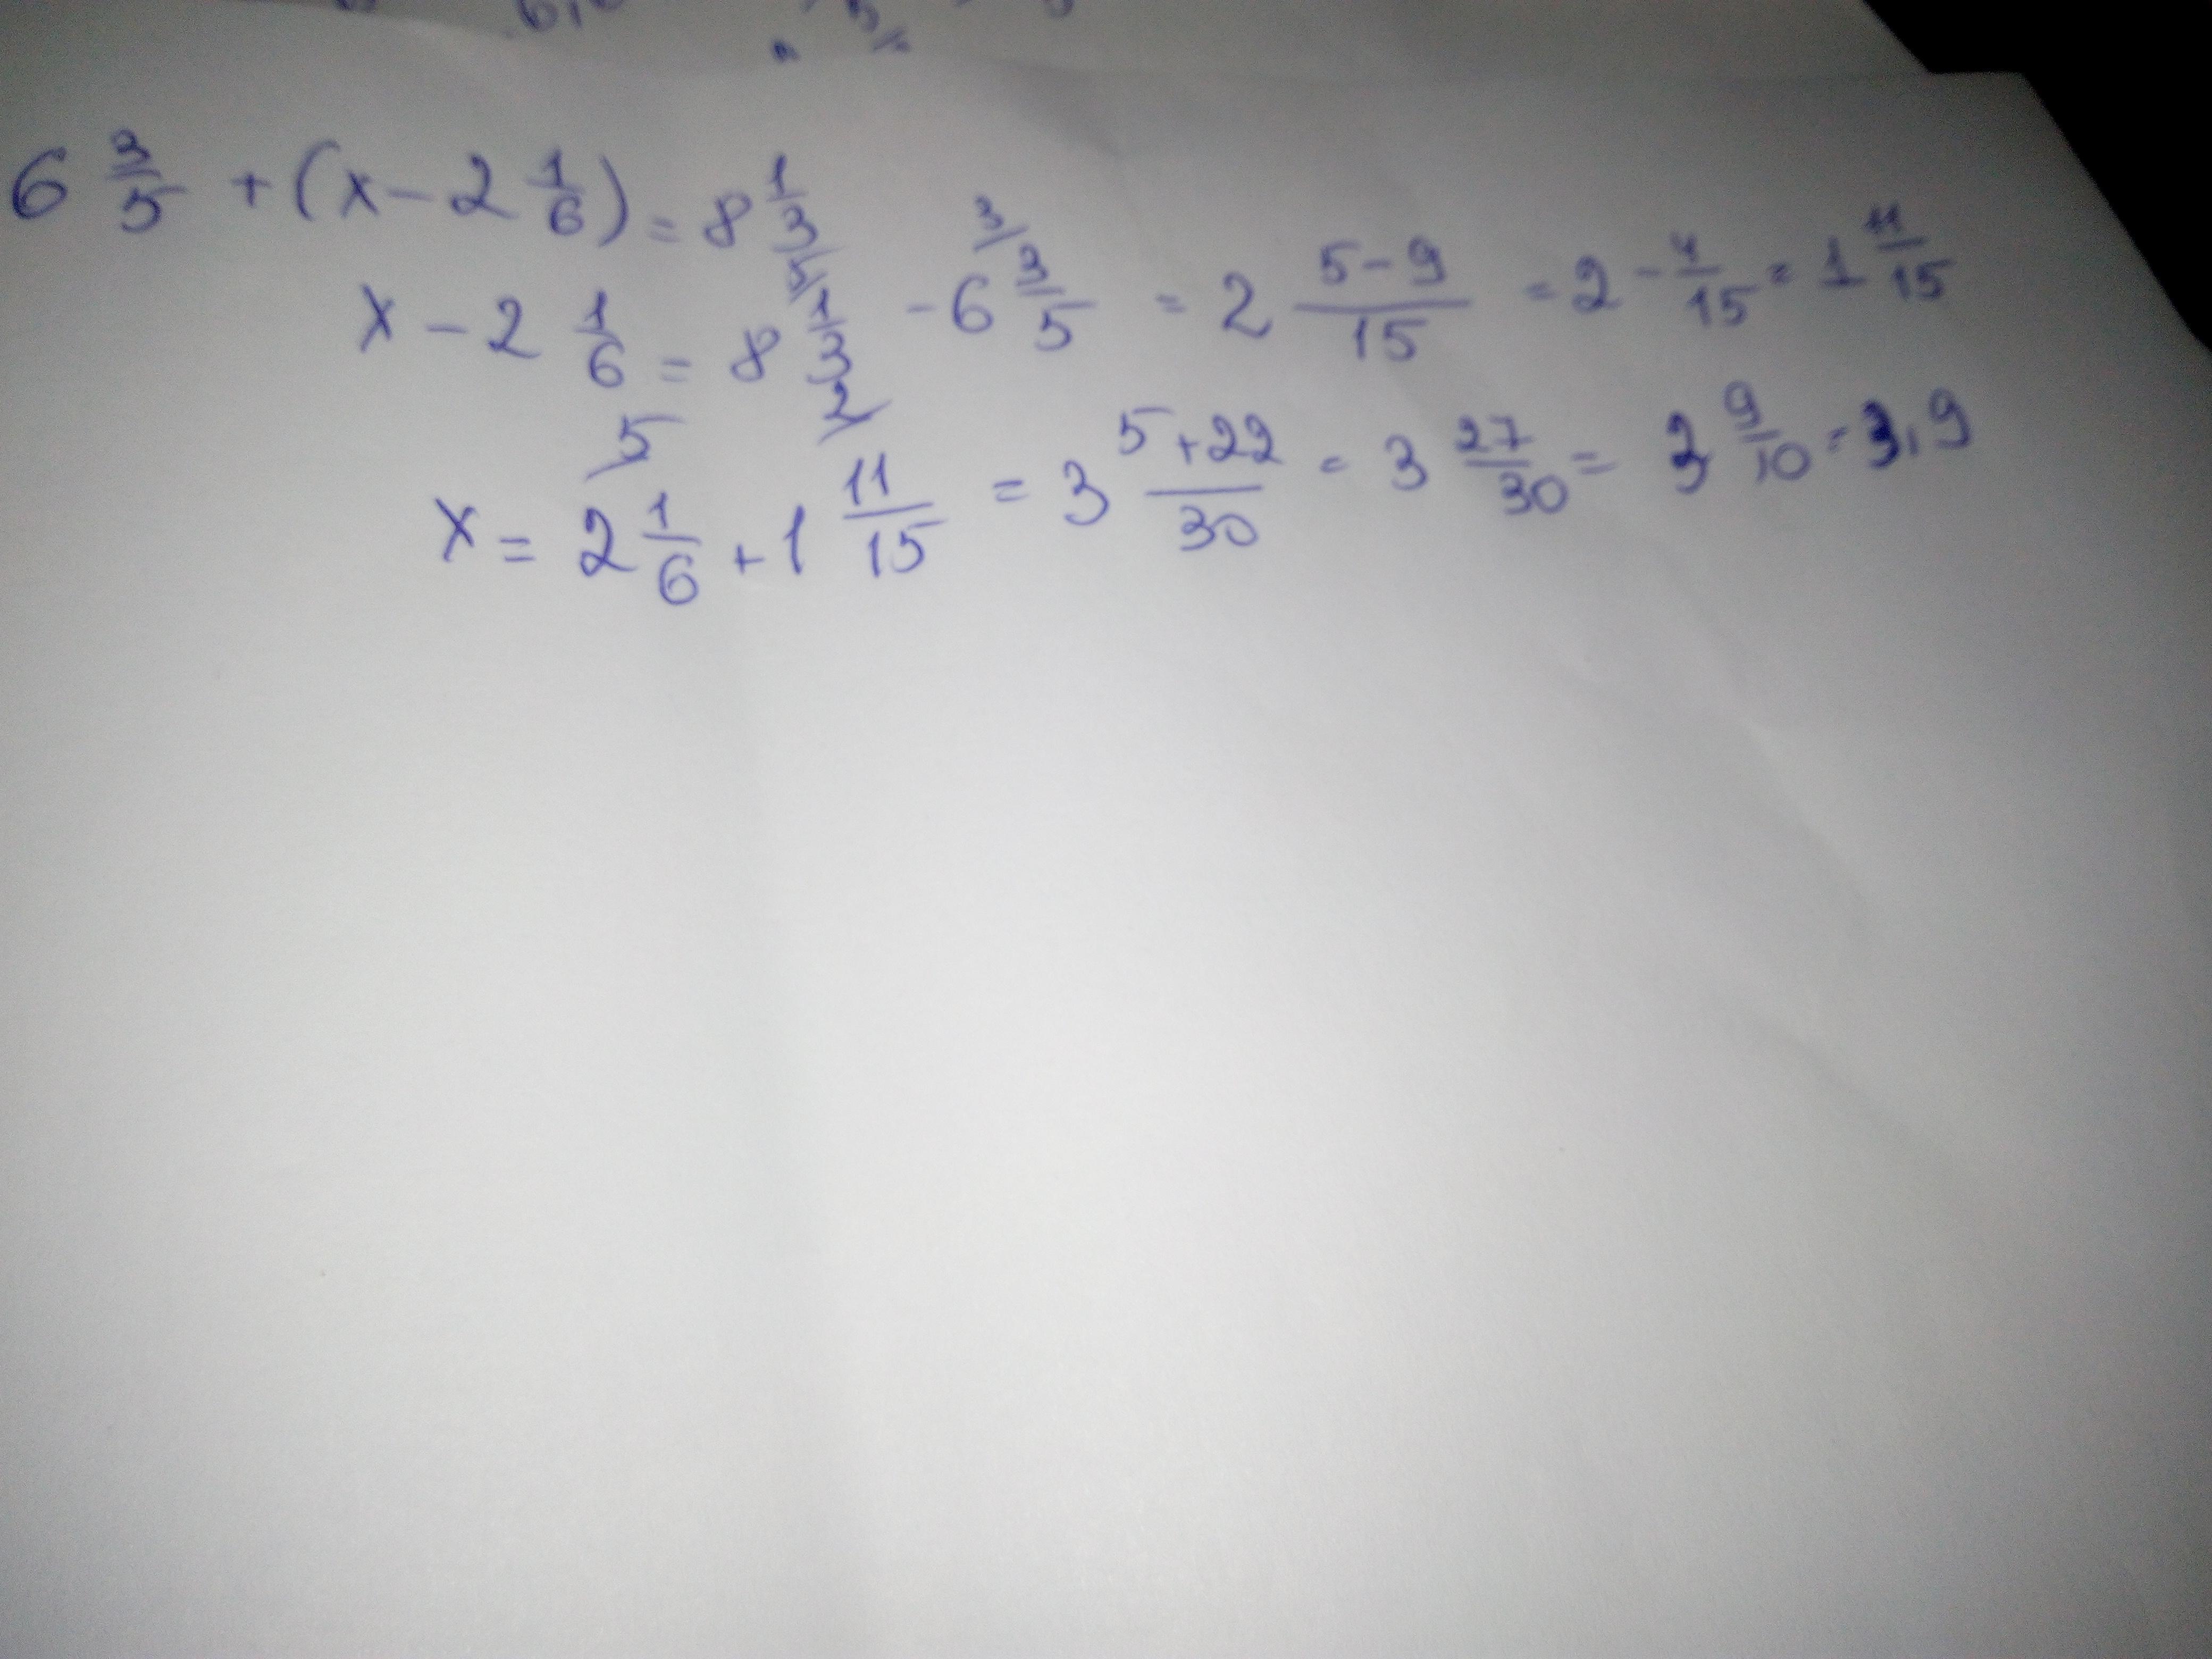 6 3/5 + (x - 2 1/6) = 8 1/3
x - 2 1/6 = 8 1/3 5/ - 6 3/5 3/ = 2 (5-9)/15 = 2 - 4/15 = 1 11/15
x = 2 1/6 5/ + 1 11/15 2/ = 3 (5+22)/30 = 3 27/30 = 3 9/10 = 3,9